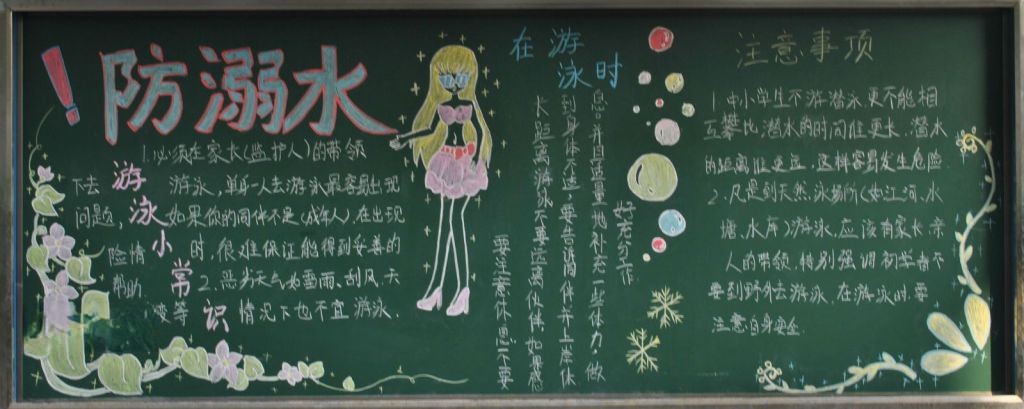 ！防溺水
游泳小常识
1.必须在家长(监护人)的带领
下去游泳，单身一人去游泳最容易出现
问题，如果你的同伴不是(成年人)，在出现
险情时，很难保证能得到妥善的
帮助
2.恶劣天气如雷雨、刮风、天
变等情况下也不宜游泳。
在游泳时
要注意休息不要
长距离游泳不要远离伙伴如果感
到身体不适，要告诉同伴并上岸休
息。并且适量地补充一些体力，做
好充分工作
注意事项
1.中小学生不游潜泳更不能相
互攀比,潜水的时间谁更长、潜水
的距离谁更远，这样容易发生危险
2.凡是到天然泳场所(如江河、水
塘、水库)游泳，应该有家长亲
人的带领，特别强调初学者不
要到野外去游泳，在游泳时，要
注意自身安全.